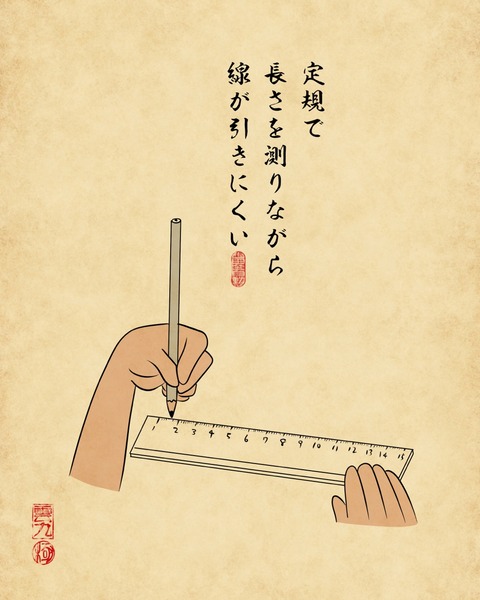 定規で
長さを測りながら
線が引きにくい
1 2 3 4 5 6 7 8 9 10 11 12 13 14 15